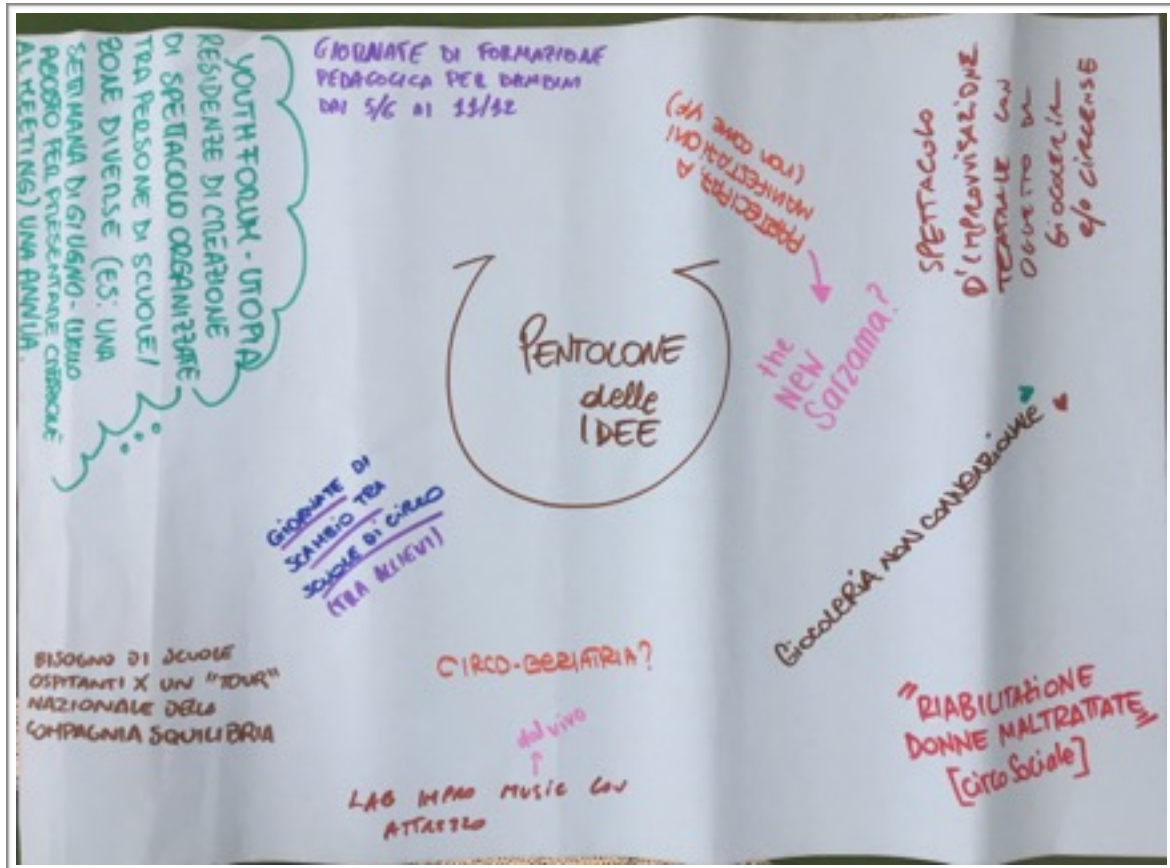 YOUTH FORUM - UTOPIA
RESIDENZE DI CREAZIONE
DI SPETTACOLO ORGANIZZATE
TRA PERSONE DI SCUOLE /
ZONE DIVERSE (ES: UNA
SETTIMANA DI GIUGNO - LUGLIO
AGOSTO PER PRESENTARE
AL MEETING) UNA ANNUA.
GIORNATE DI FORMAZIONE
PEDAGOGICA PER BAMBINI
DAI 5/6 AI 11/12
PARTECIPAZ. A
MANIFESTAZIONI
(NON COME YF)
the
NEW
Sarzama?
SPETTACOLO
D'IMPROVVISAZIONE
TEATRALE CON
OGGETTO DI
GIOCOLERIA
e/o CIRCENSE
PENTOLONE
delle
IDEE
GIORNATE DI
SCAMBIO TRA
SCUOLE DI CIRCO
(TRA ALLIEVI)
GIOCOLERIA NON CONVENZIONALE
BISOGNO DI SCUOLE
OSPITANTI X UN "TOUR"
NAZIONALE DELLA
COMPAGNIA SQUILIBRIA
CIRCO-GERIATRIA?
dal vivo
LAB IMPRO MUSIC CON
ATTREZZO
"RIABILITAZIONE
DONNE MALTRATTATE"
[circo Sociale]